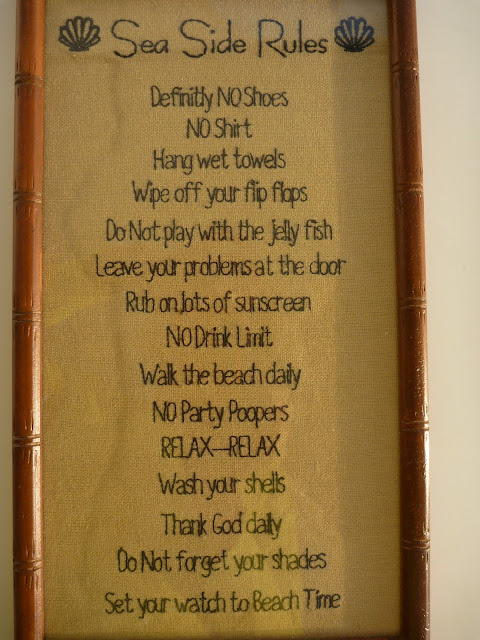 Sea Side Rules
Definitly NO Shoes
NO Shirt
Hang wet towels
Wipe off your flip flops
Do Not play with the jelly fish
Leave your problems at the door
Rub on lots of sunscreen
NO Drink Limit
Walk the beach daily
NO Party Poopers
RELAX—RELAX
Wash your shells
Thank God daily
Do Not forget your shades
Set your watch to Beach Time